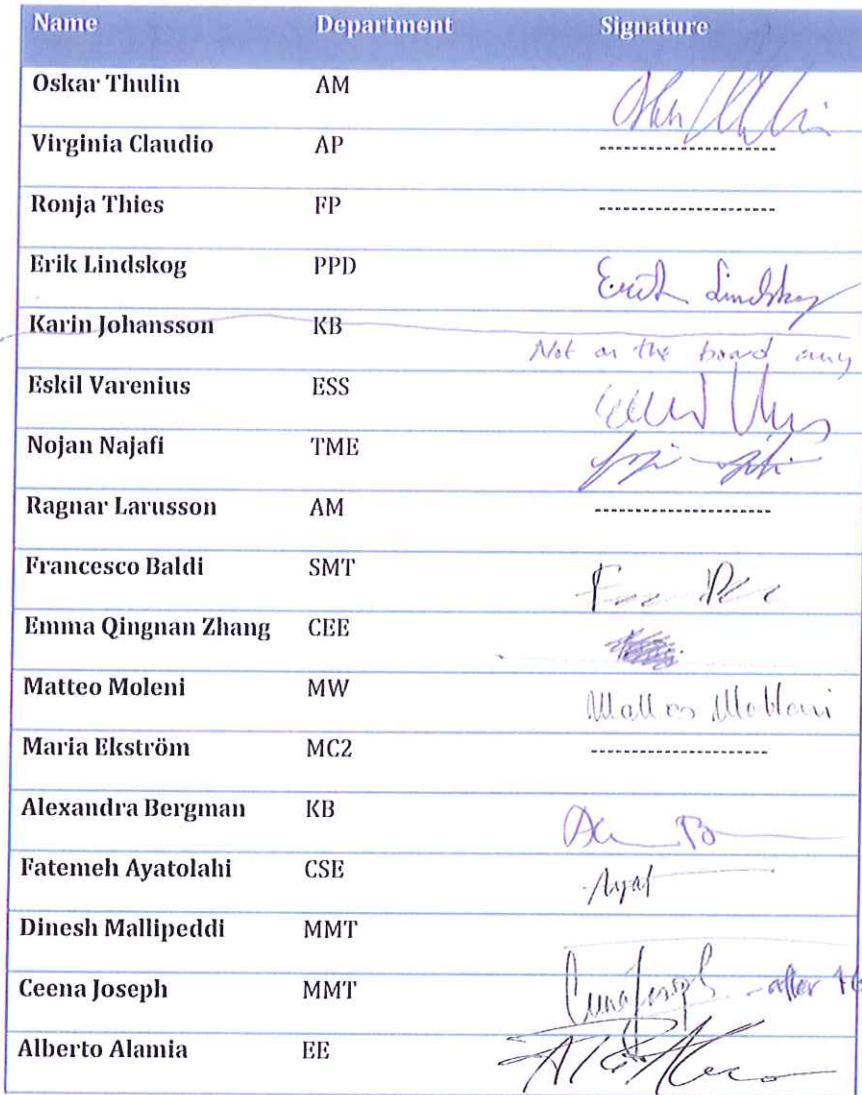 Name Department Signature
Oskar Thulin AM
Virginia Claudio AP --------------------
Ronja Thies FP --------------------
Erik Lindskog PPD Erik Lindskog
Karin Johansson KB
Not on the board any
Eskil Varenius ESS
Nojan Najafi TME
Ragnar Larusson AM --------------------
Francesco Baldi SMT
Emma Qingnan Zhang CEE
Matteo Moleni MW
Maria Ekström MC2 --------------------
Alexandra Bergman KB
Fatemeh Ayatolahi CSE Ayat
Dinesh Mallipeddi MMT
Ceena Joseph MMT Ceena Joseph - after
Alberto Alamia EE